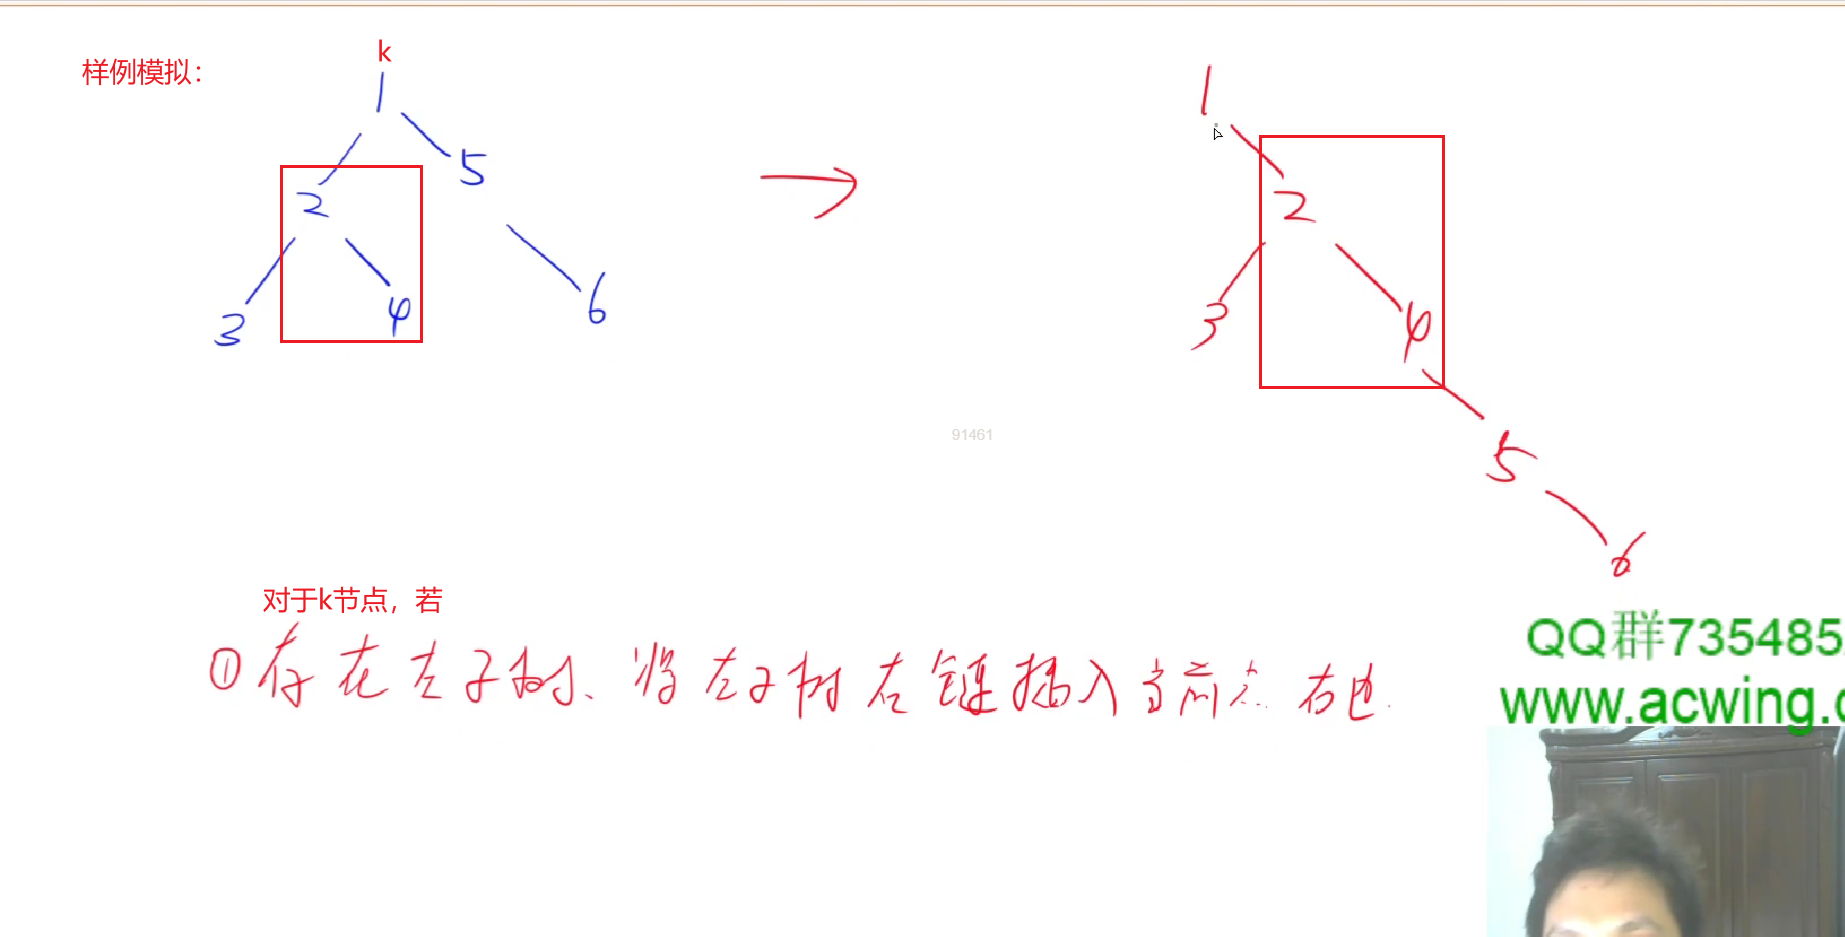 样例模拟：
k
1
2
5
3
4
6
1
2
3
4
5
6
91461
对于k节点，若
①存在左子树、将左子树右链插入当前点右边.
QQ群735485
www.acwing.c